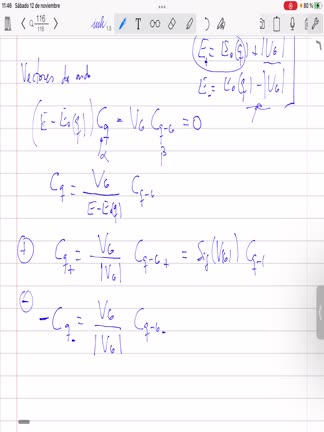 11:46 Sábado 12 de noviembre 80 %
116
116
E₊ = E₀(q) + |V_G|
E₋ = E₀(q) - |V_G|
Vectores de onda
(E - E₀(q)) C_q = V_G C_{q-G} = 0
α β
C_q = V_G / (E - E₀(q)) C_{q-G}
(+) C_{q+} = V_G / |V_G| C_{q-G+} = sig(V_G) C_{q-
(-)
- C_{q-} = V_G / |V_G| C_{q-G-}